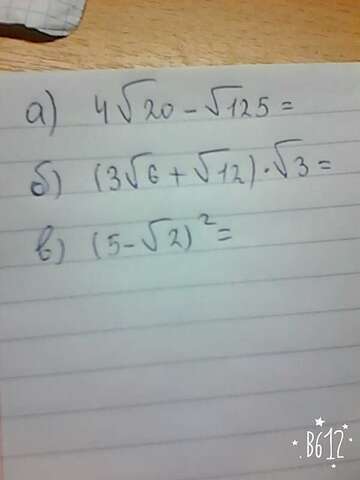 а) 4√20 - √125 =
б) (3√6 + √12) · √3 =
в) (5 - √2)² =
B612